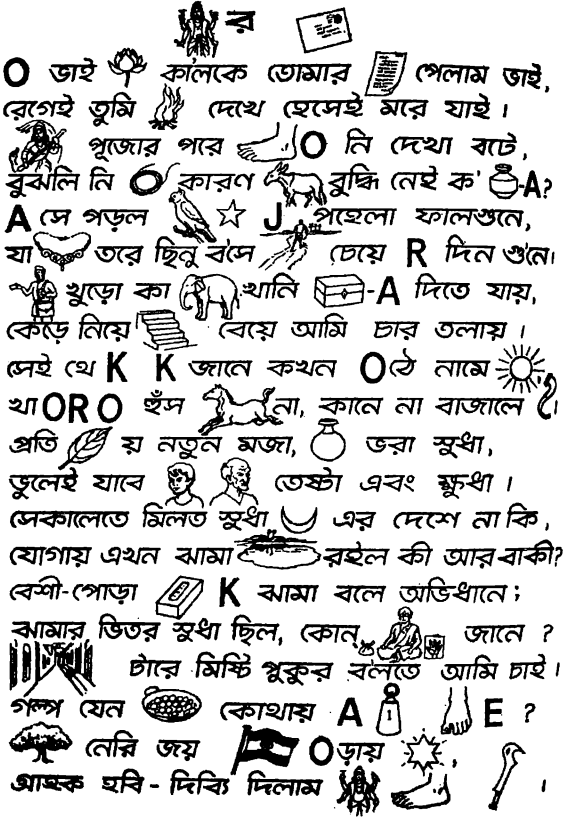 র
O ভাই কালকে তোমার পেলাম ভাই,
রেগেই তুমি দেখে হেসেই মরে যাই।
পূজোর পরে O নি দেখা বটে,
বুঝলি নি কারণ বুদ্ধি নেই ক' -A?
A সে পড়ল J পহেলা ফালগুনে,
যা তরে ছিনু ব'সে চেয়ে R দিন গুনে।
খুড়ো কা খানি -A দিতে যায়,
কেড়ে নিয়ে বেয়ে আমি চার তলায়।
সেই থে K K জানে কখন O ঠে নামে
খা ORO হুঁস না, কানে না বাজালে।
প্রতি য় নতুন মজা, ভরা সুধা,
ভুলেই যাবে তেষ্টা এবং ক্ষুধা।
সেকালেতে মিলত সুধা এর দেশে না কি,
যোগায় এখন ঝামা রইল কী আর বাকী?
বেশী-পোড়া K ঝামা বলে অভিধানে;
ঝামার ভিতর সুধা ছিল, কোন্ জানে?
টারে মিষ্টি পুকুর বলতে আমি চাই।
গল্প যেন কোথায় A E ?
নেরি জয় O ড়ায় ,
আহক হবি - দিব্যি দিলাম ।